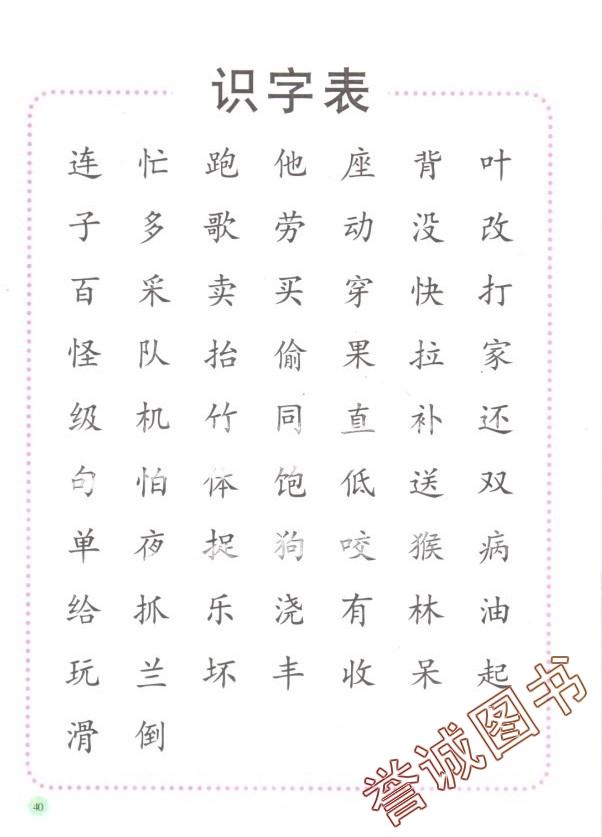 识字表
连 忙 跑 他 座 背 叶
子 多 歌 劳 动 没 改
百 采 卖 买 穿 快 打
怪 队 抬 偷 果 拉 家
级 机 竹 同 直 补 还
句 怕 体 饱 低 送 双
单 夜 捉 狗 咬 猴 病
给 抓 乐 浇 有 林 油
玩 兰 坏 丰 收 呆 起
滑 倒
誉诚图书
40